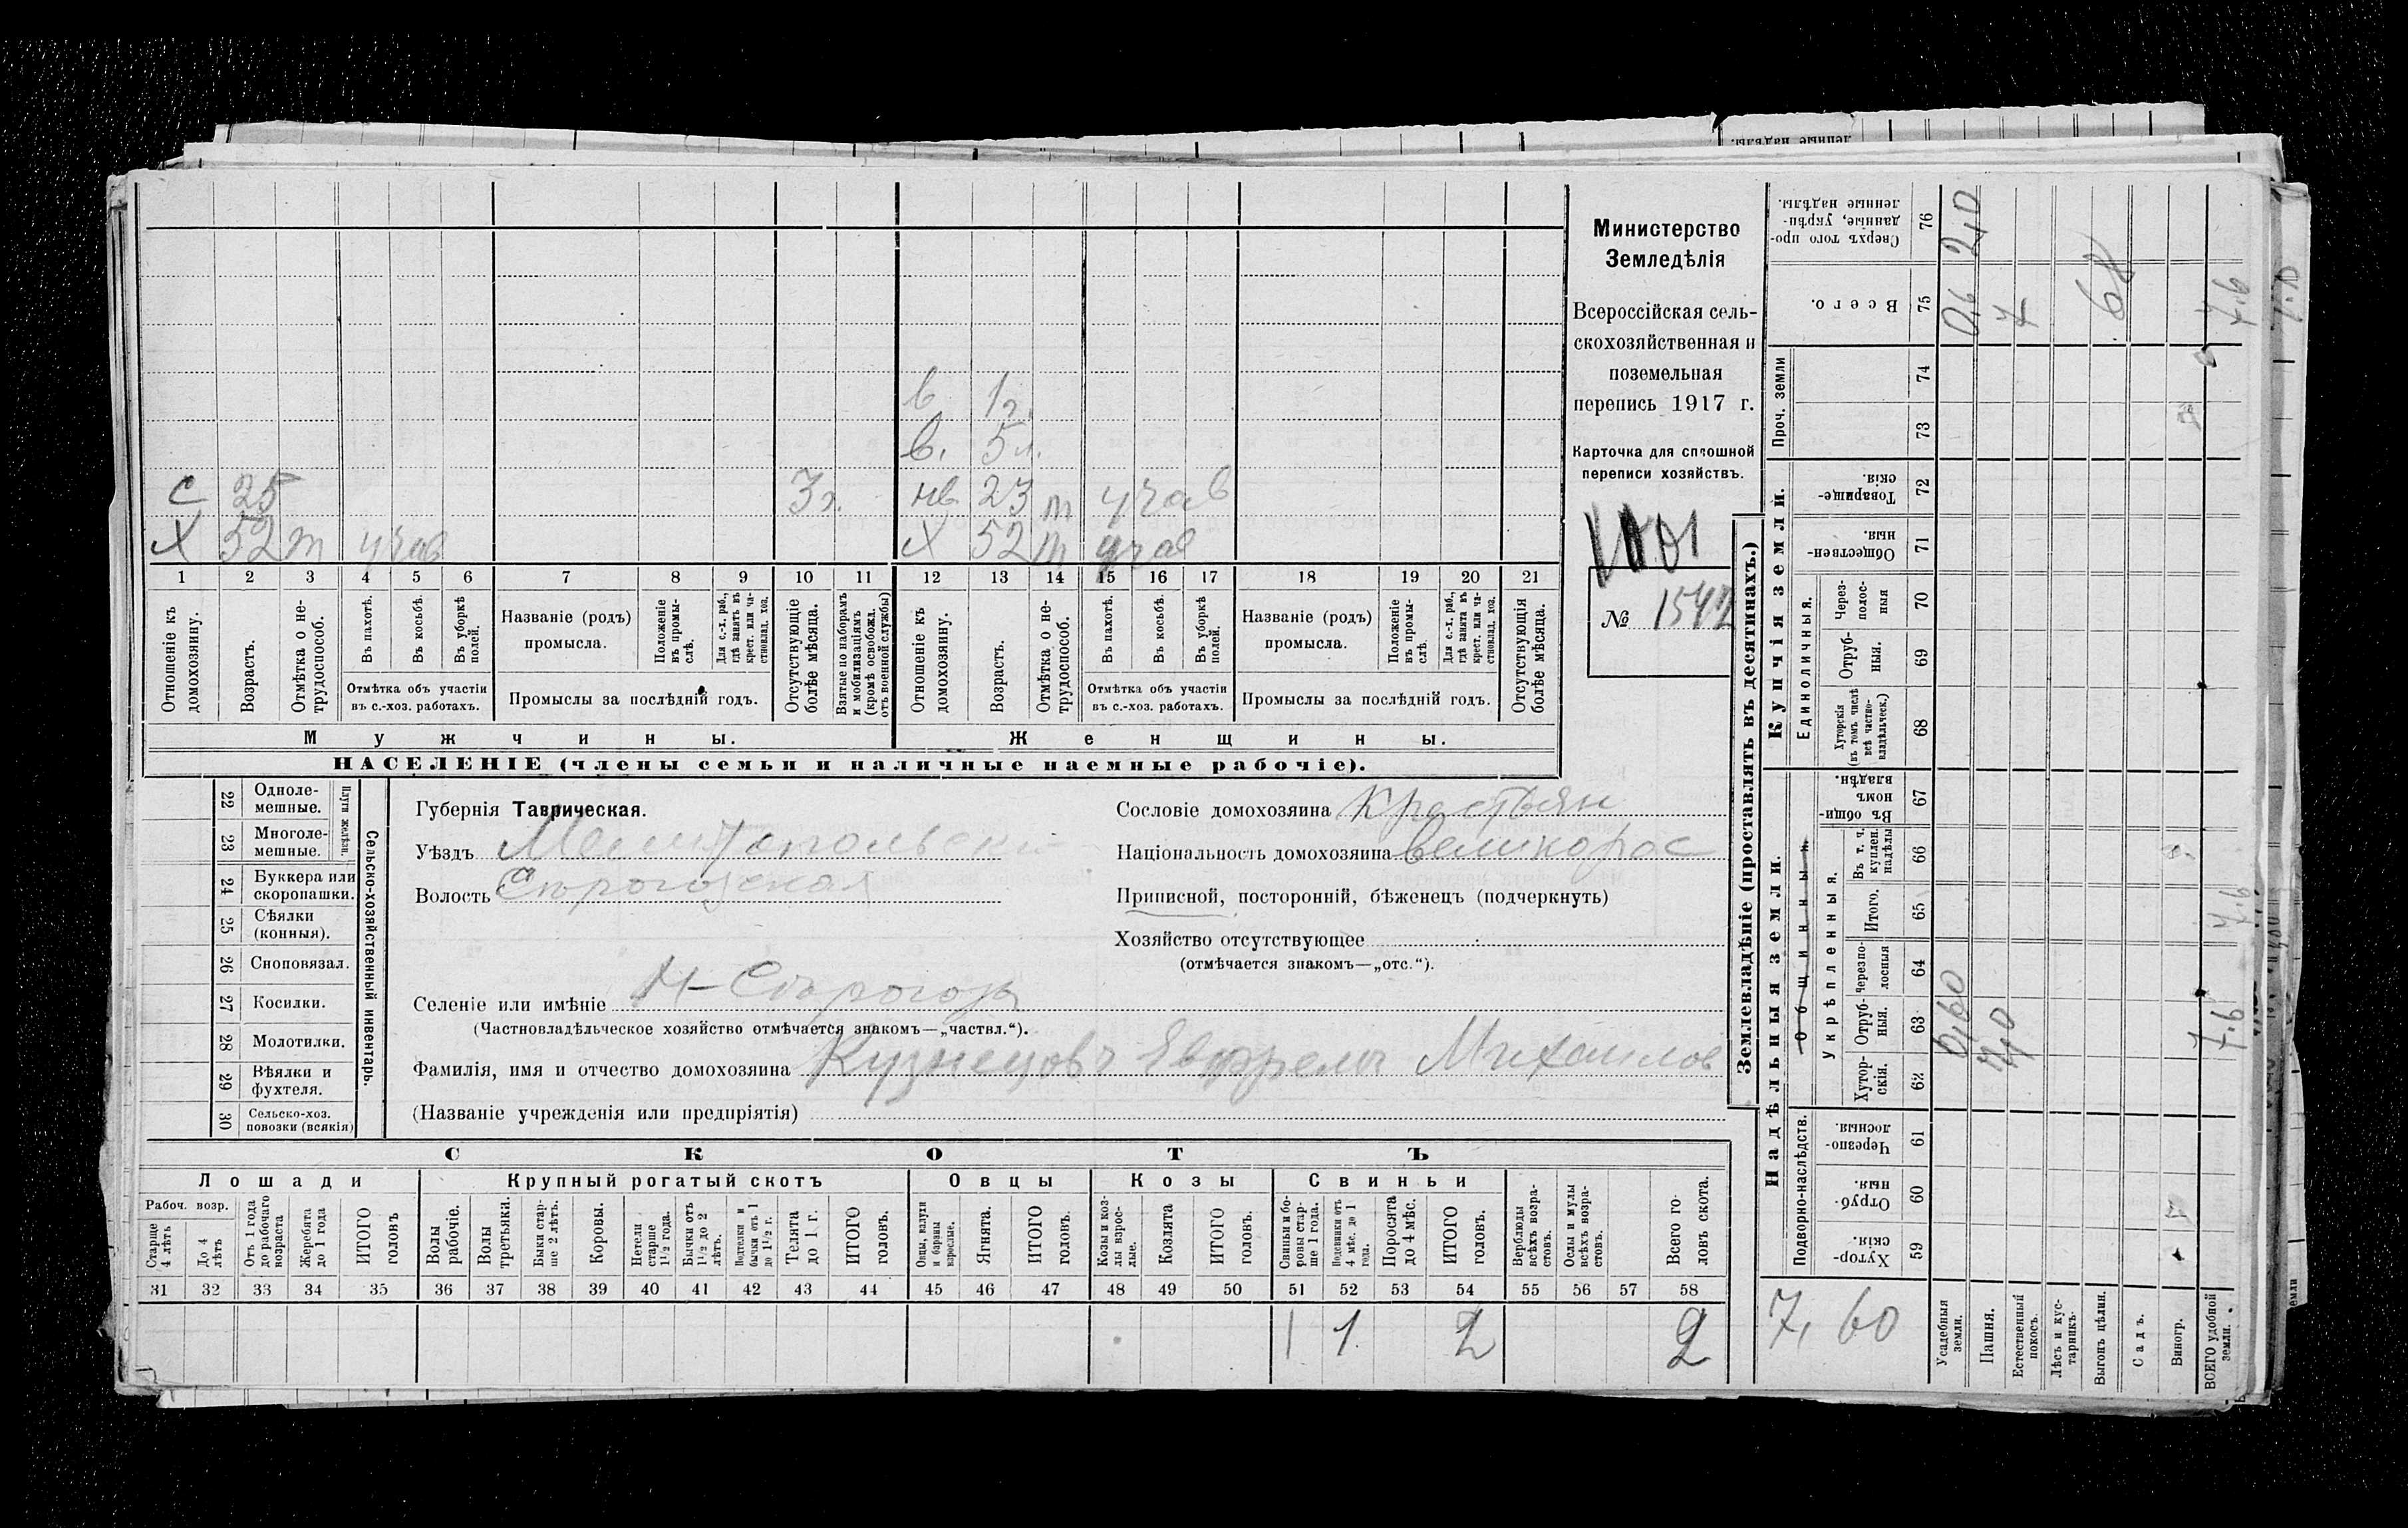 в 1 г.
в. 5 л.
с 25 3 г. нв 23 т учав
х 52 т учав х 52 т учав
1 2 3 4 5 6 7 8 9 10 11 12 13 14 15 16 17 18 19 20 21
Отношеніе къ домохозяину.
Возрастъ.
Отмѣтка о нетрудоспособ.
Въ пахотѣ.
Въ косьбѣ.
Въ уборкѣ полей.
Отмѣтка объ участіи
въ с.-хоз. работахъ.
Названіе (родъ)
промысла.
Положеніе въ промыслѣ.
Для с.-х. раб., гдѣ занятъ въ крест. или частновлад. хоз.
Промыслы за послѣдній годъ.
Отсутствующіе болѣе мѣсяца.
Взятые по наборамъ и мобилизаціямъ (кромѣ освобожд. отъ военной службы)
Отношеніе къ домохозяину.
Возрастъ.
Отмѣтка о нетрудоспособ.
Въ пахотѣ.
Въ косьбѣ.
Въ уборкѣ полей.
Отмѣтка объ участіи
въ с.-хоз. работахъ.
Названіе (родъ)
промысла.
Положеніе въ промыслѣ.
Для с.-х. раб., гдѣ занята въ крест. или частновлад. хоз.
Промыслы за послѣдній годъ.
Отсутствующія болѣе мѣсяца.
Мужчины. Женщины.
НАСЕЛЕНІЕ (члены семьи и наличные наемные рабочіе).
Министерство
Земледѣлія
Всероссійская сель-
скохозяйственная и
поземельная
перепись 1917 г.
Карточка для сплошной
переписи хозяйствъ.
№ 1542
22 Однолемешные.
23 Многолемешные.
Плуги желѣзн.
24 Буккера или скоропашки.
25 Сѣялки (конныя).
26 Сноповязал.
27 Косилки.
28 Молотилки.
29 Вѣялки и фухтеля.
30 Сельско-хоз. повозки (всякія)
Сельско-хозяйственный инвентарь.
Губернія Таврическая.
Уѣздъ Мелитопольски
Волость Сѣрогозская
Селеніе или имѣніе Н-Сѣрогозы
(Частновладѣльческое хозяйство отмѣчается знакомъ—„частвл.“).
Фамилія, имя и отчество домохозяина Кузнецовъ Евфремъ Михаилов
(Названіе учрежденія или предпріятія)
Сословіе домохозяина Крестьян
Національность домохозяина великорос
Приписной, посторонній, бѣженецъ (подчеркнуть)
Хозяйство отсутствующее
(отмѣчается знакомъ—„отс.“).
СКОТЪ
Лошади Крупный рогатый скотъ Овцы Козы Свиньи
Рабоч. возр.
Старше 4 лѣтъ
До 4 лѣтъ
Отъ 1 года до рабочаго возраста
Жеребята до 1 года
ИТОГО головъ
Волы рабочіе.
Волы третьяки.
Быки старше 2 лѣтъ.
Коровы.
Нетели старше 1 1/2 года.
Бычки отъ 1 1/2 до 2 лѣтъ.
Подтелки и бычки отъ 1 до 1 1/2 г.
Телята до 1 г.
ИТОГО головъ.
Овцы, валухи и бараны взрослые.
Ягнята.
ИТОГО головъ.
Козы и козлы взрослые.
Козлята
ИТОГО головъ.
Свиньи и боровы старше 1 года.
Подсвинки отъ 4 мѣс. до 1 года.
Поросята до 4 мѣс.
ИТОГО головъ.
Верблюды всѣхъ возрастовъ.
Ослы и мулы всѣхъ возрастовъ.
Всего головъ скота.
31 32 33 34 35 36 37 38 39 40 41 42 43 44 45 46 47 48 49 50 51 52 53 54 55 56 57 58
1 1 2 2
Землевладѣніе (проставлять въ десятинахъ.)
Купчія земли.
Надѣльныя земли.
Сверхъ того проданные, укрѣпленные надѣлы. 76 2,0
Всего. 75 0,6 7 68 7.6
Проч. земли 74
73
Товарищескія. 72
Общественныя. 71
Единоличныя.
Черезполосныя 70
Отрубныя. 69
Хуторскія (въ томъ числѣ всѣ частновладѣльческ.) 68
Общинныя
Въ общинномъ владѣн. 67
Укрѣпленныя.
Въ т. ч. куплен. надѣлы 66
Итого. 65 7.6
Черезполосныя 64
Отрубныя. 63 0,60 7,0 7.6
Хуторскія. 62
Подворно-наслѣдств.
Черезполосныя. 61
Отрубныя. 60
Хуторскія. 59
7,60
Усадебныя земли.
Пашня.
Естественный покосъ.
Лѣсъ и кустарникъ.
Выгонъ цѣлин.
Садъ.
Виногр.
ВСЕГО удобной земли.